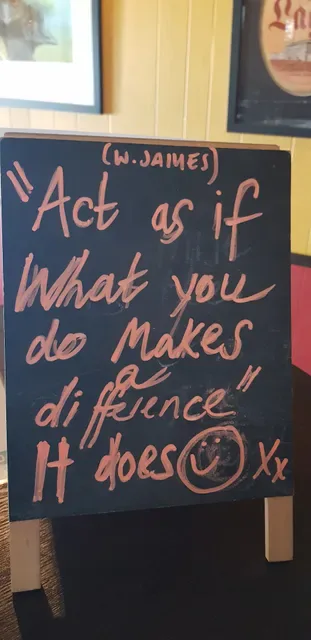 (W. JAMES)
"Act as if
What you
do Makes
a
difference"
It does Xx